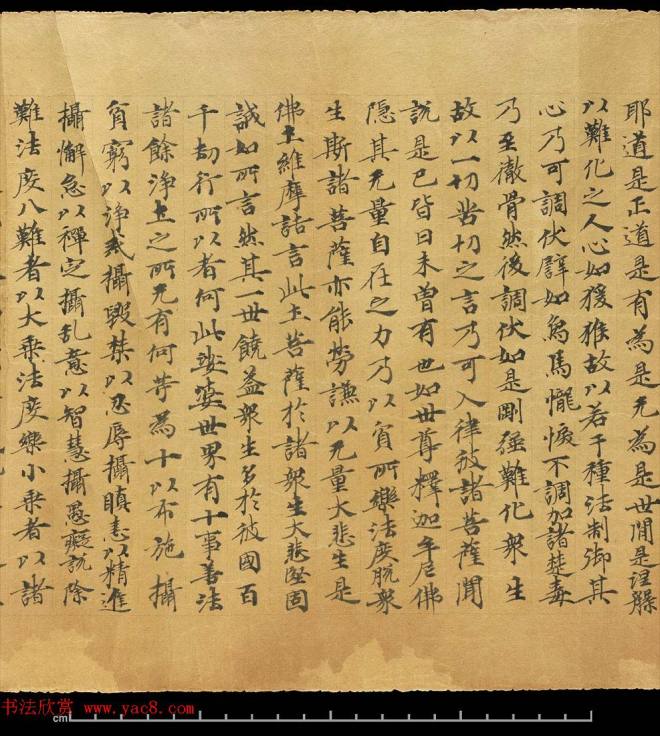 耶道是正道是有為是无為是世間是涅槃
以難化之人心如猨猴故以若干種法制御其
心乃可調伏譬如鳥馬𢤱悷不調加諸楚毒
乃至徹骨然後調伏如是剛强難化衆生
故以一切苦切之言乃可入律彼諸菩薩聞
說是已皆曰未曽有也如世尊釋迦牟尼佛
隠其无量自在之力乃以貧所樂法度脫衆
生斯諸菩薩亦能勞謙以无量大悲生是
佛土維摩詰言此土菩薩於諸衆生大悲堅固
誠如所言然其一世饒益衆生多於彼國百
千劫行所以者何此娑婆世界有十事善法
諸餘淨土之所无有何等為十以布施攝
貧窮以淨戒攝毀禁以忍辱攝瞋恚以精進
攝懈怠以禪定攝乱意以智慧攝愚癡說除
難法度八難者以大乘法度樂小乘者以諸
书法欣赏
www.yac8.com
cm